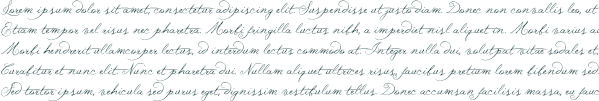 Lorem ipsum dolor sit amet, consectetur adipiscing elit. Suspendisse ut justo diam. Donec non convallis leo, ut
Etiam tempor vel risus nec pharetra. Morbi fringilla luctus nibh, a imperdiet nisl aliquet in. Morbi varius au
Morbi hendrerit ullamcorper lectus, id interdum lectus commodo at. Integer nulla dui, volutpat vitae sodales et,
Curabitur et nunc elit. Nunc et pharetra dui. Nullam aliquet ultrices risus, faucibus pretium lorem bibendum sed.
Sed tortor ipsum, vehicula sed purus eget, dignissim vestibulum tellus. Donec accumsan facilisis massa, eu fauc